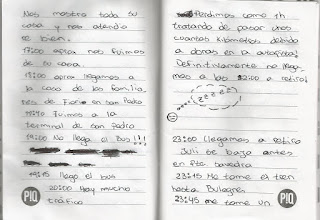 Nos mostro toda su
casa y nos atendio
re bien.
17:00 aprox nos fuimos
de su casa
18:00 aprox llegamos a
la casa de los familia
res de Fiore en San Pedro
18:40 Fuimos a la
terminal de San Pedro
19:00 No llega el bus !!!
19:15 llega el bus
20:00 Hay mucho
tráfico
PIQ
Perdimos como 1h
tratando de pasar unos
cuantos kilómetros debido
a obras en la autopista!
Definitivamente no llega
mos a las 22:00 a retiro!
z z z z
23:00 llegamos a retiro
Juli se baja antes
en Pte Saavedra
23:25 Me tome el tren
hasta Bulogne
23:45 me tome un
PIQ